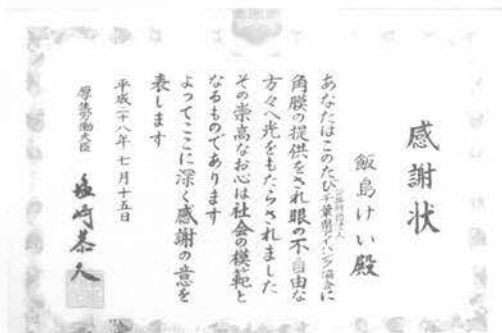 感謝状
飯島けい殿
あなたはこのたび公益財団法人千葉県アイバンク協会に
角膜の提供をされ眼の不自由な
方々へ光をもたらされました
その崇高なお心は社会の模範と
なるものであります
よってここに深く感謝の意を
表します
平成二十八年七月十五日
厚生労働大臣
塩崎恭久